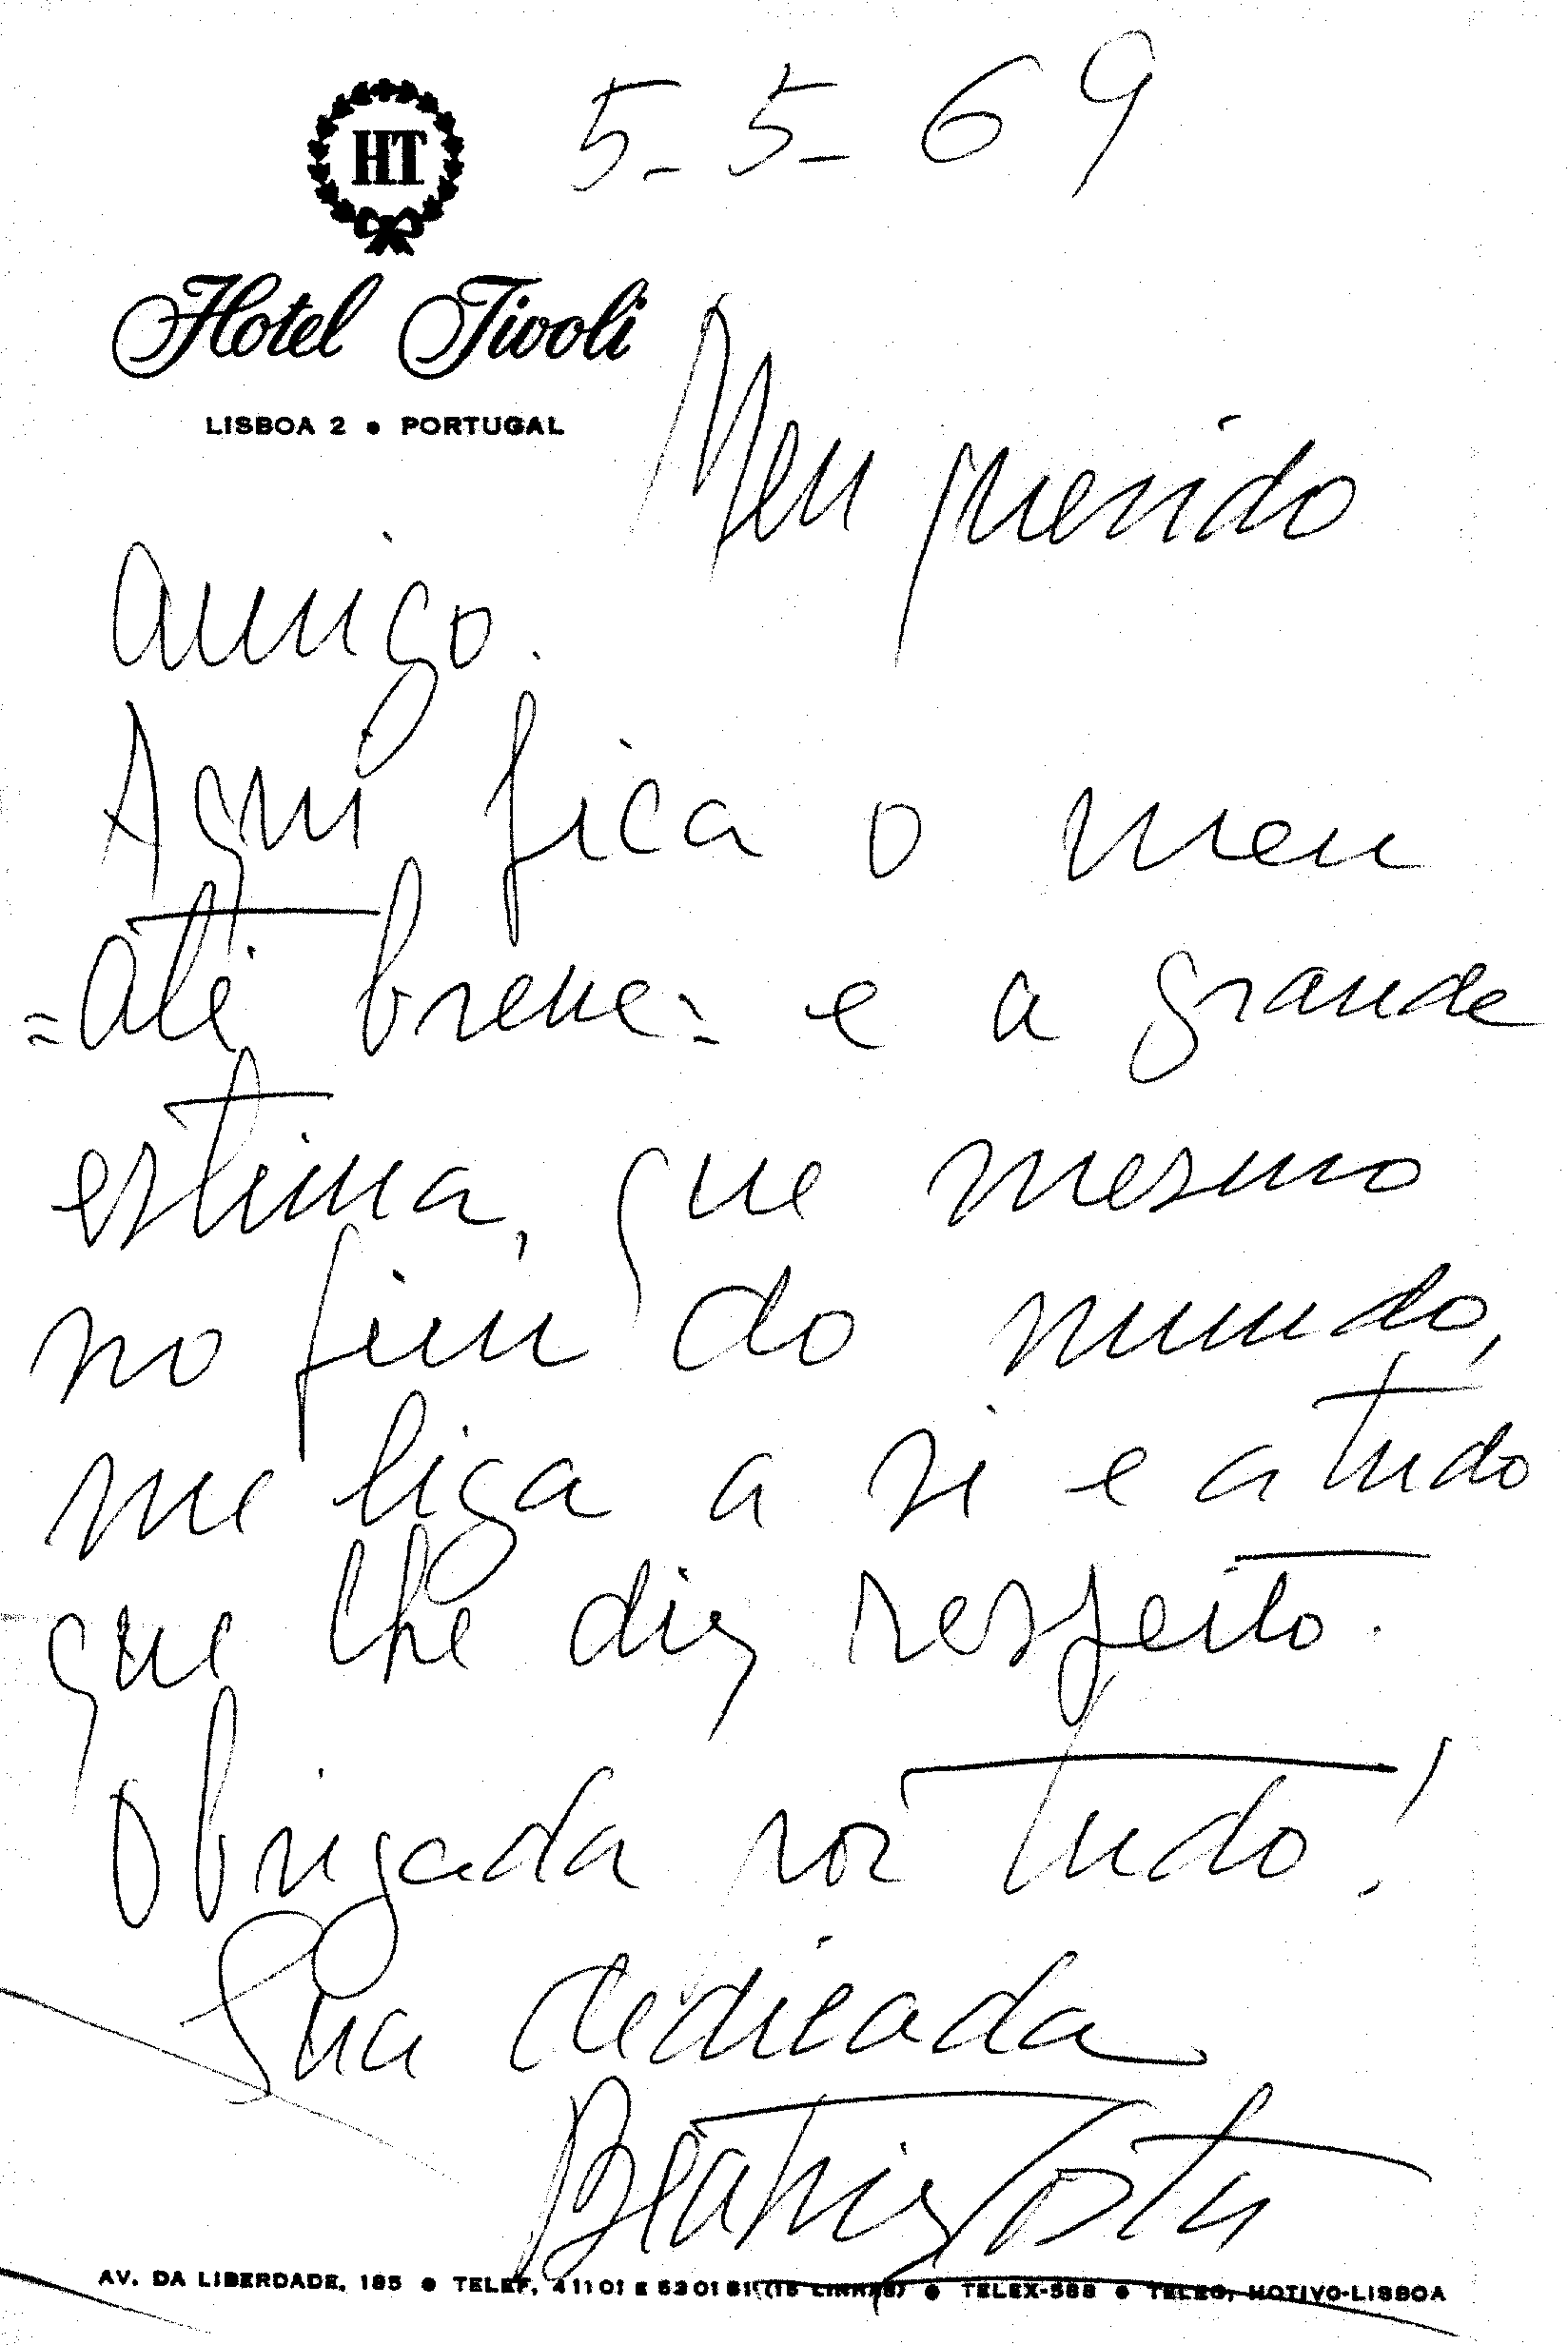 5-5-69
HT
Hotel Tivoli
LISBOA 2 • PORTUGAL
Meu querido
amigo.
Aqui fica o meu
=até breve= e a grande
estima, que mesmo
no fim do mundo,
me liga a si e a tudo
que lhe diz respeito.
Obrigada por tudo!
Sua dedicada
Beatriz Costa
AV. DA LIBERDADE, 185 • TELEF, 41101 E 530181 (15 LINHAS) • TELEX-588 • TELEG, HOTIVO-LISBOA